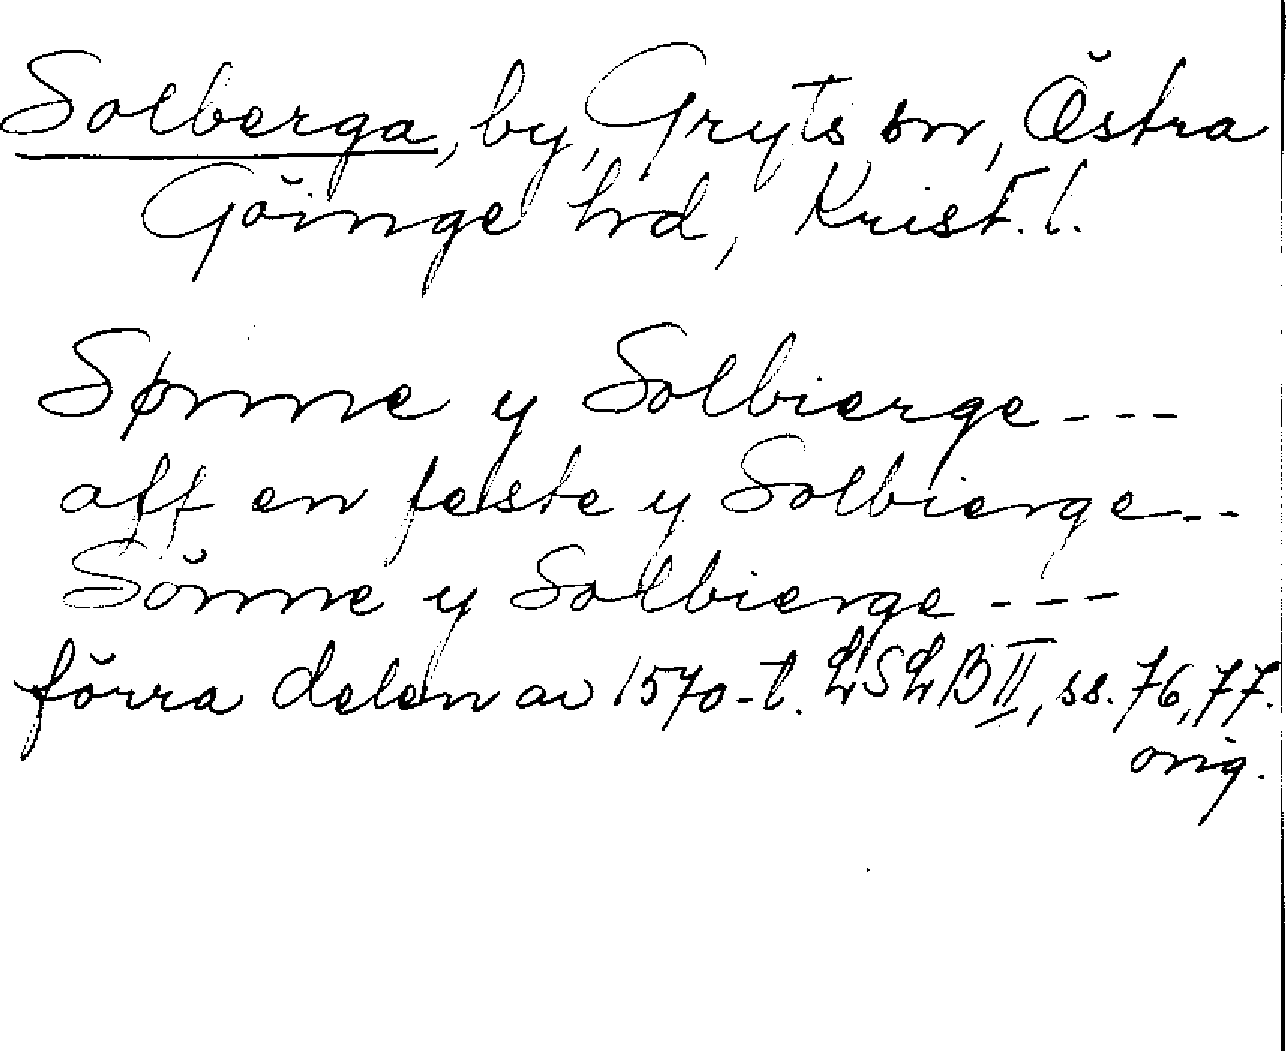 Solberga, by, Gryts sn, Östra
Göinge hrd, Krist. l.
Sønne y Solbierge - - -
aff en feste y Solbierge - -
Sönne y Solbierge - - -
förra delen av 1570-t. LSLB II, ss. 76, 77.
orig.